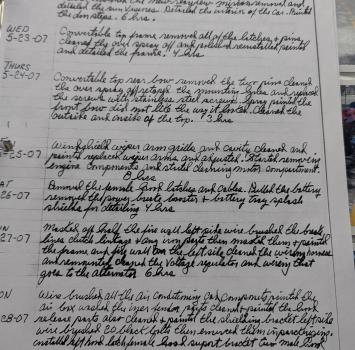 detailed the sun visors. Detailed the interior of the car. Painted
the door steps. 6 hrs.
WED
5-23-07
Convertible top frame removed all of the latches & pins,
cleaned the over spray off and polished reinstalled, painted
and detailed the frame. 4 hrs
THURS
5-24-07
Convertible top rear bow removed the two pins cleaned
the over spray off the mounting holes and replaced
the screws with stainless steel screws. Spray painted the
front bow did not like the way it looked. Cleaned the
outside and inside of the top. 3 hrs
5-25-07
Windshield wiper arm grille and cavity cleaned and
painted replaced wiper arms and adjusted. Started removing
engine components and started cleaning motor compartment.
8 hrs
SAT
26-07
Removed the female hood latches and cables. Pulled the battery
removed the power brake booster & battery tray splash
shields for detailing 4 hrs
27-07
Masked off half the fire wall left side wire brushed the brake
lines clutch linkage & any iron parts then masked them & painted
the beams and fire wall on the left side cleaned the wiring harness
and remounted cleaned the voltage regulator and wiring that
goes to the alternator 6 hrs
28-07
Wire brushed all the Air Conditioning components painted the
air box washed the inner fender parts cleaned & painted the hood
release parts also cleaned & painted the shielding bracket left side
wire brushed 20 black bolts then emersed them in
installed left hood latch female hood support bracket two male hood